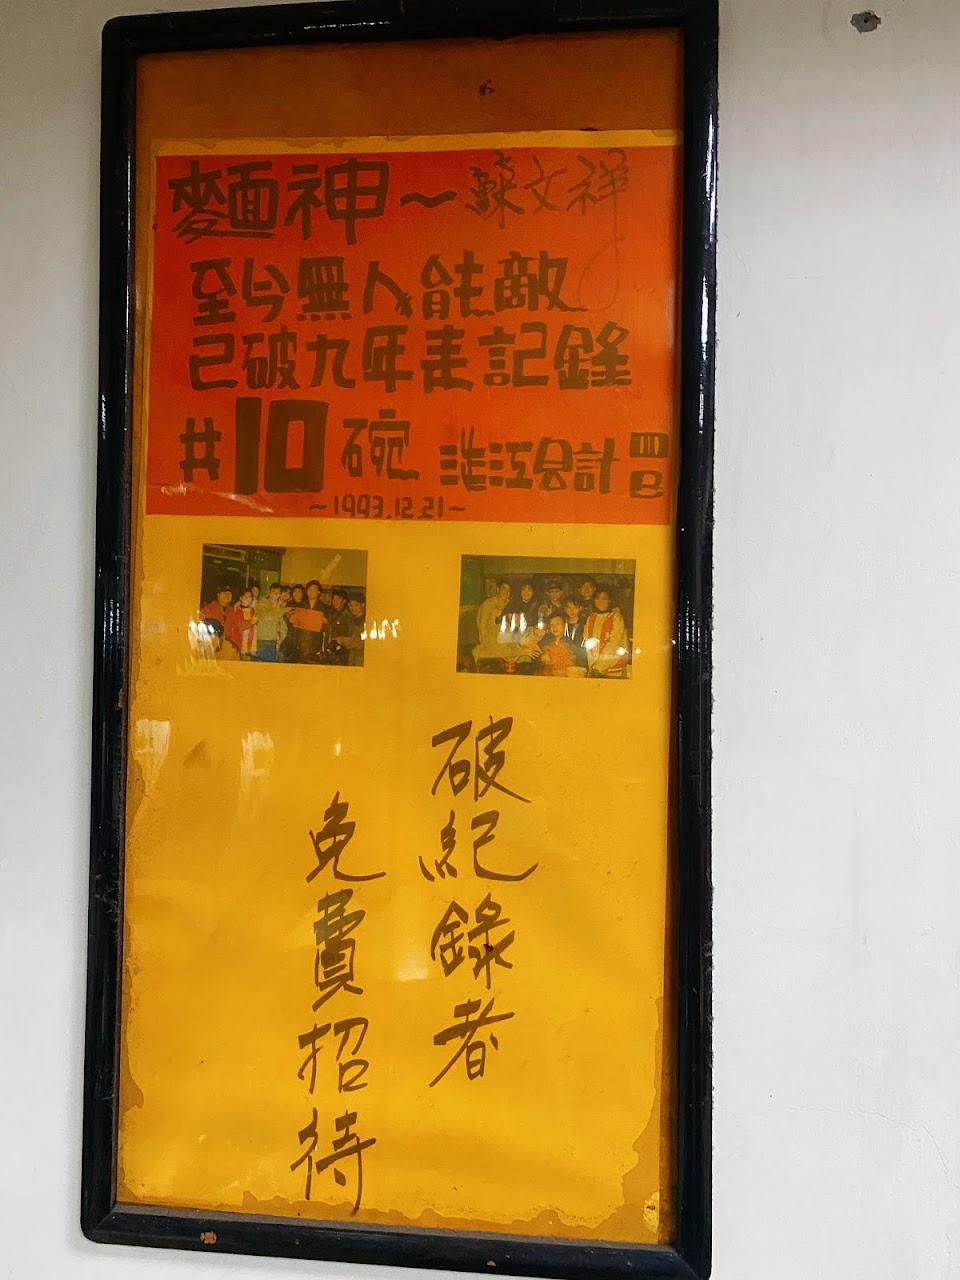 麵神~蘇文祥
至今無人能敵
已破九年來記錄
共10碗 淡江會計四B
~1993.12.21~
破紀錄者
免費招待